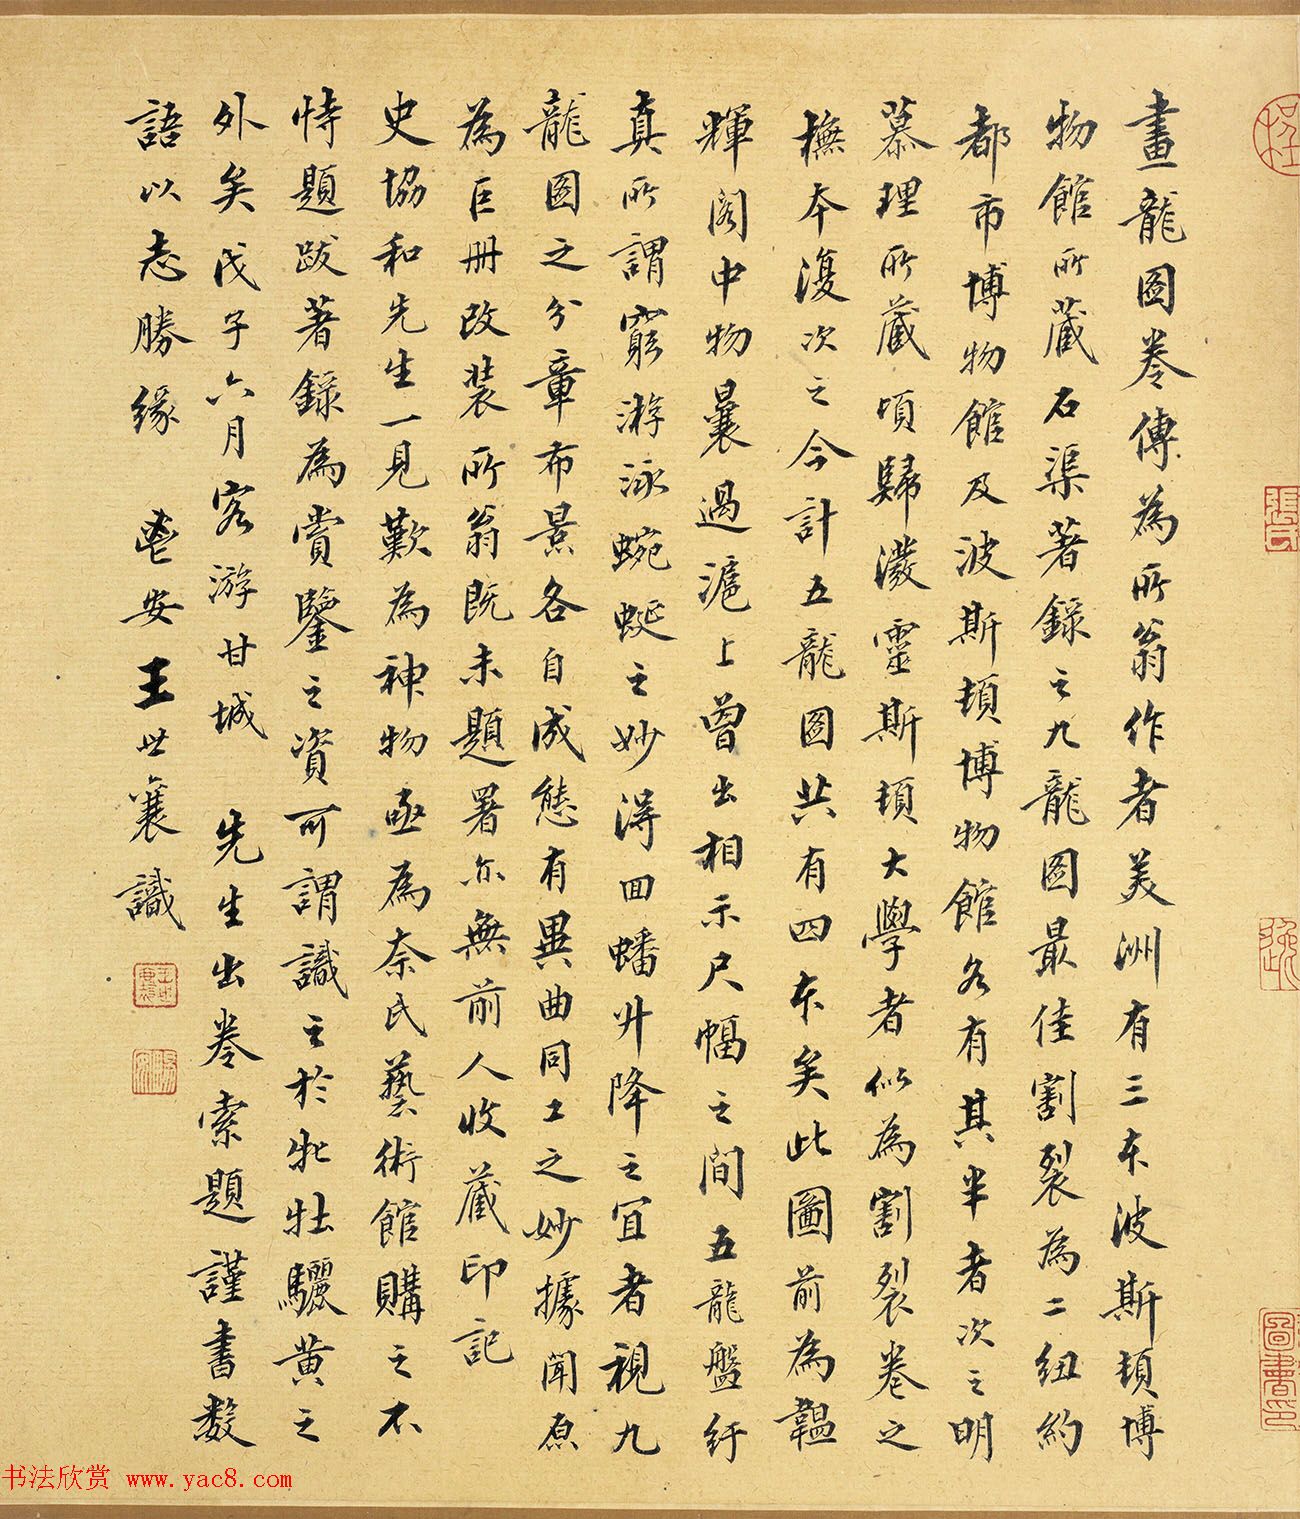 畫龍圖卷傳為所翁作者美洲有三本波斯頓博
物館所藏石渠著錄之九龍圖最佳割裂為二紐約
都市博物館及波斯頓博物館各有其半者次之明
慕理所藏頃歸瀀靈斯頓大學者似為割裂卷之
橅本復次之今計五龍圖共有四本矣此圖前為韞
輝閣中物曩過滬上曾出相示尺幅之間五龍盤紆
真所謂窮游泳蜿蜒之妙得回蟠升降之宜者視九
龍圖之分章布景各自成態有異曲同工之妙據聞原
為巨冊改裝所翁既未題署亦無前人收藏印記
史協和先生一見歎為神物亟為奈氏藝術館購之不
恃題跋著錄為賞鑒之資可謂識之於牝牡驪黃之
外矣戊子六月客游甘城 先生出卷索題謹書數
語以志勝緣 鬯安王世襄識
張氏
圖書印
书法欣赏 www.yac8.com